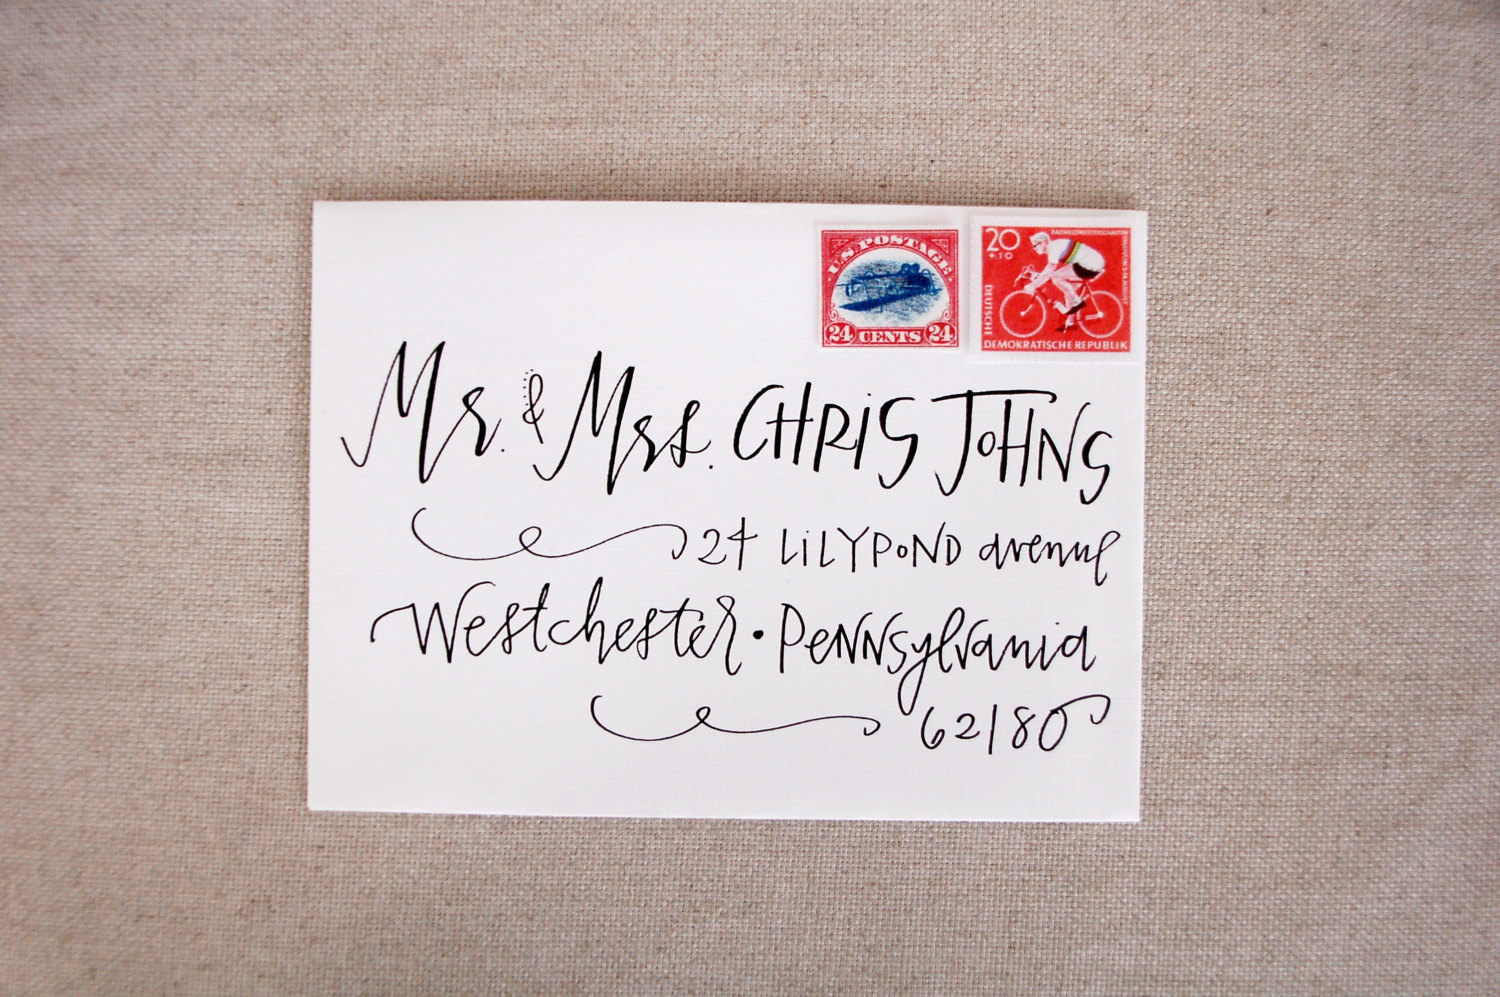 U.S. POSTAGE
24 CENTS 24
20
+10
RADWELTMEISTERSCHAFTEN
DEUTSCHE
DEMOKRATISCHE REPUBLIK
Mr. & Mrs. CHRiS JOHNS
24 LiLYPOND avenue
Westchester • Pennsylvania
62180